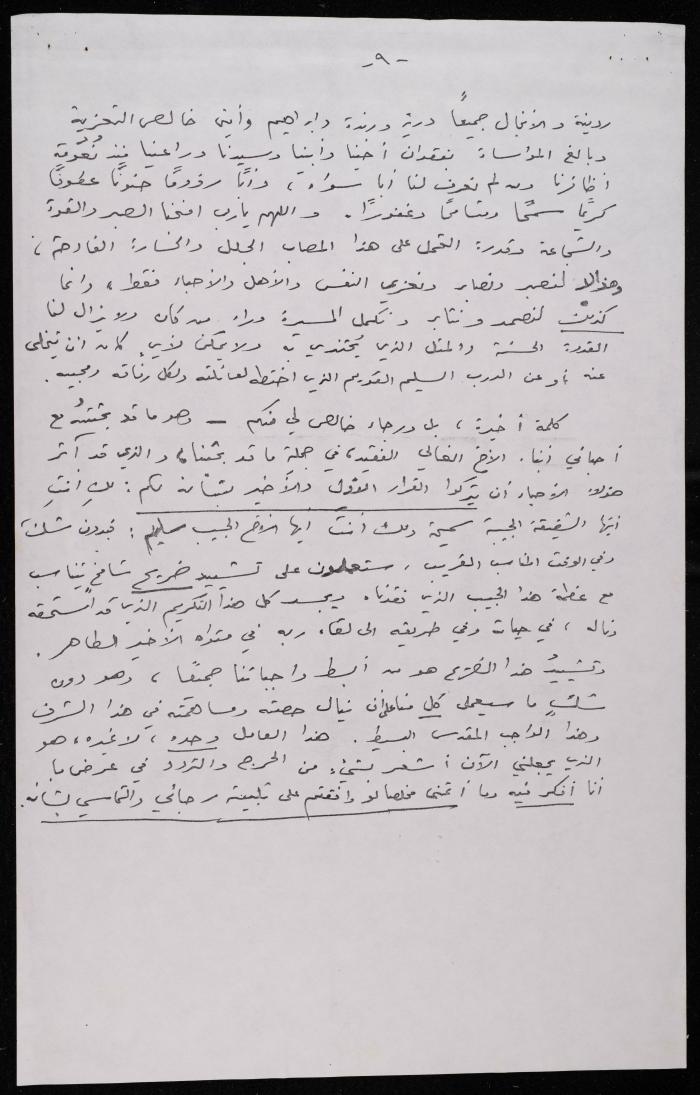 - ٩ -
ردينة والأنجال جميعاً درية ورندة وابراهيم وأيني خالص التعزية
وبالغ المواساة بفقدان أخينا وأبينا وسيدنا وراعينا منذ نعومة
أظافرنا ومن لم نعرف لنا أبا سواه، وأبًا رؤوفًا حنونًا عطوفًا
كريمًا سمحًا ومتسامحًا وغفورًا. واللهم يا رب امنحنا الصبر والقوة
والشجاعة وقدرة التحمل على هذا المصاب الجلل والخسارة الفادحة،
لنصبر ونصابر ونعزي النفس والأهل والأحباء فقط، وانما
كذلك لنصمد ونثابر ونكمل المسيرة وراء من كان ولا يزال لنا
القدوة الحسنة والمثل الذي يُحتذي به ولا يمكن لأيٍ كان ان يتخلى
عنه أو عن الدرب السليم القويم الذي اختطه لعائلته ولكل رفاقه ومحبيه.
كلمة أخيرة، بل ورجاء خالص لي منكم - وهو ما قد بحثتهُ مع
أحبائي أبناء الأخ الغالي الفقيد، في جملة ما قد بحثناه والذي قد آثر
هؤلاء الأحباء أن يتركوا القرار الأول والأخير بشأنه لكم: لكِ أنتِ
أيتها الشقيقة الحبيبة سميحة ولك أنتَ ايها الأخ الحبيب سليم: فبدون شك
وفي الوقت المناسب القريب، ستعملون على تشييد ضريح شامخ يتناسب
مع عظمة هذا الحبيب الذي فقدناه ويجسد كل هذا التكريم الذي قد استحقه
وناله، في حياته وفي طريقه الى لقاء ربه في مثواه الأخير الطاهر.
وتشييدُ هذا الضريح هو من أبسط واجباتنا جميعًا، وهو دون
شكٍ ما سيعمل كل منا على أن ينال حصته ومساهمته في هذا الشرف
وهذا الواجب المقدس البسيط. هذا العامل وحده، لا غيره، هو
الذي يجعلني الآن أشعر بشيءٍ من الحرج والتردد في عرض ما
أنا أفكر فيه وما أتمنى مخلصا لو وافقتم على تلبية رجائي والتماسي بشأنه.